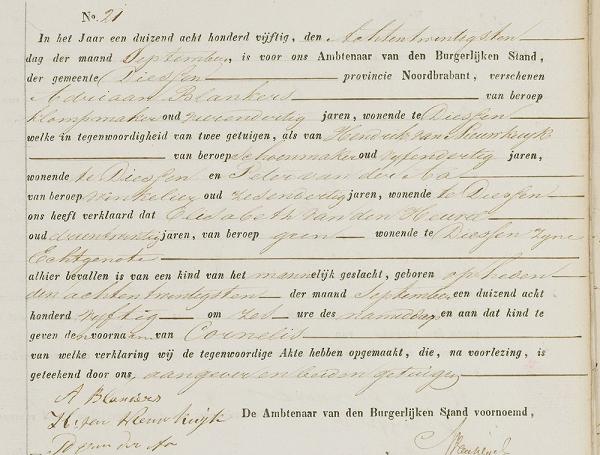 No. 21
In het Jaar een duizend acht honderd vijftig, den Achtentwintigsten
dag der maand September, is voor ons Ambtenaar van den Burgerlijken Stand,
der gemeente Diessen provincie Noordbrabant, verschenen
Adriaan Blankers van beroep
klompmaker oud vierendertig jaren, wonende te Diessen
welke in tegenwoordigheid van twee getuigen, als van Hendrik van
van beroep schoenmaker oud vyfendertig jaren,
wonende te Diessen en Peter van der Aa
van beroep winkelier oud zesendertig jaren, wonende te Diessen
ons heeft verklaard dat Elisabeth van den Heuvel
oud drientwintig jaren, van beroep geen wonende te Diessen zyne
Echtgenote
alhier bevallen is van een kind van het mannelijk geslacht, geboren op heden
den achtentwintigsten der maand September een duizend acht
honderd vyftig om zes ure des namiddag en aan dat kind te
geven den voornaam van Cornelis
van welke verklaring wij de tegenwoordige Akte hebben opgemaakt, die, na voorlezing, is
geteekend door ons, aangever en beiden getuigen
A Blankers
H. van
De Ambtenaar van den Burgerlijken Stand voornoemd,
P van der Aa